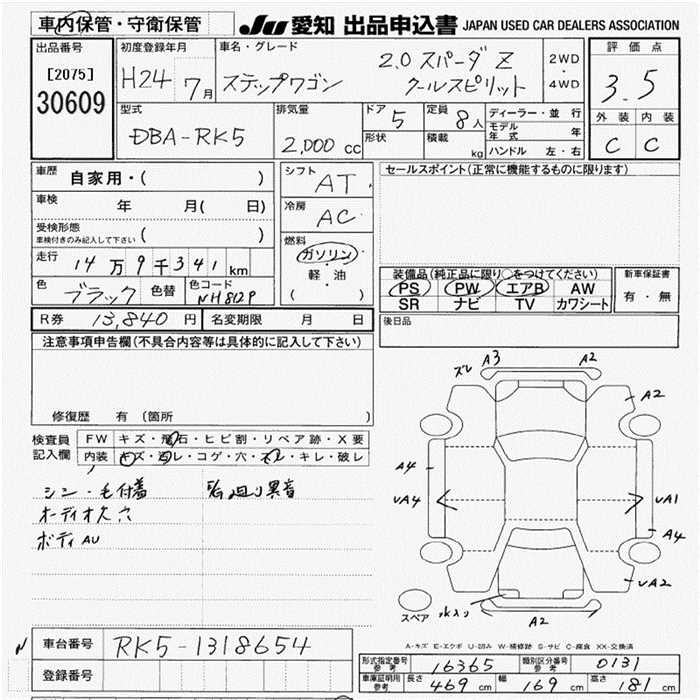 車内保管・守衛保管
JU 愛知 出品申込書 JAPAN USED CAR DEALERS ASSOCIATION
出品番号
[2075]
30609
初度登録年月
H24 7月
車名・グレード
ステップワゴン
2.0 スパーダ Z
クールスピリット
2WD
・
4WD
評価点
3.5
外装 内装
C C
型式
DBA-RK5
排気量
2,000 cc
ドア 5
形状
定員 8人
積載 kg
ディーラー・並行
モデル年式 年
ハンドル 左・右
車歴 自家用・( )
車検 年 月( 日)
受検形態
車検付きのみ記入して下さい ( )
走行 14万9千341km
色 ブラック 色替
色コード NH812P
シフト AT
冷房 AC
燃料
ガソリン・
軽・油
( )
セールスポイント(正常に機能するものに限ります)
装備品(純正品に限り○をつけてください)
PS PW エアB AW
SR ナビ TV カワシート
新車保証書
有・無
R券 13,840円 名変期限 月 日
後日品
注意事項申告欄(不具合内容等は具体的に記入して下さい)
修復歴 有 (箇所 )
検査員
記入欄
FW キズ・飛石・ヒビ割・リペア跡・X要
内装 キズ・ヨゴレ・コゲ・穴・スレ・キレ・破レ
シン・毛付着
オーディオ欠 穴
ボディ AU
廻り異音
ズレ A3 A2
A2
A4
UA4
UA1
A4
UA2
A2
スペア
A-キズ E-エクボ U-凹み W-補修跡 S-サビ C-腐食 XX-交換済
車台番号 RK5-1318654
登録番号
形式指定番号 参考 16365
類別区分番号 参考 0131
車庫証明用 参考 長さ 469 cm 幅 169 cm 高さ 181 cm